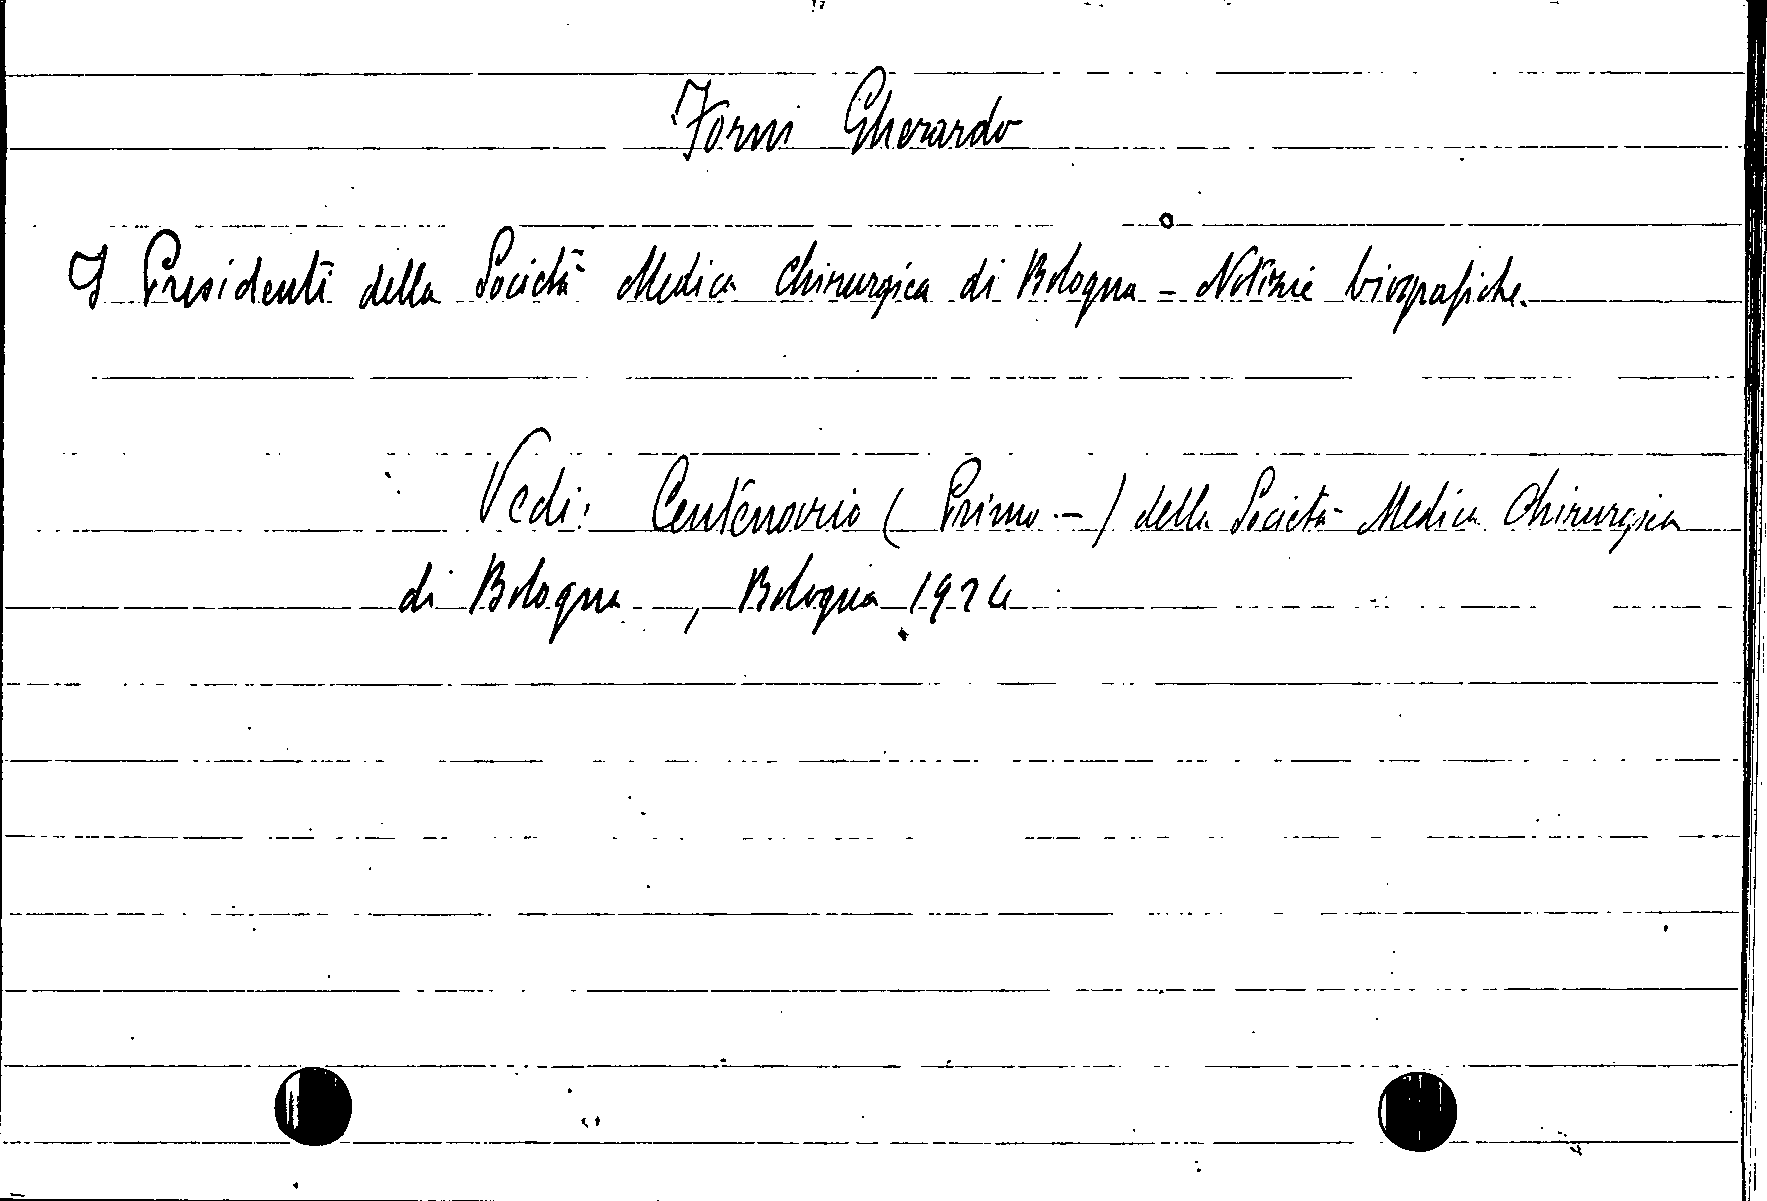 Forni Gherardo
I Presidenti della Società Medica Chirurgica di Bologna - Notizie biografiche.
Vedi: Centenario ( Primo - ) della Società Medica Chirurgica
di Bologna , Bologna 1924